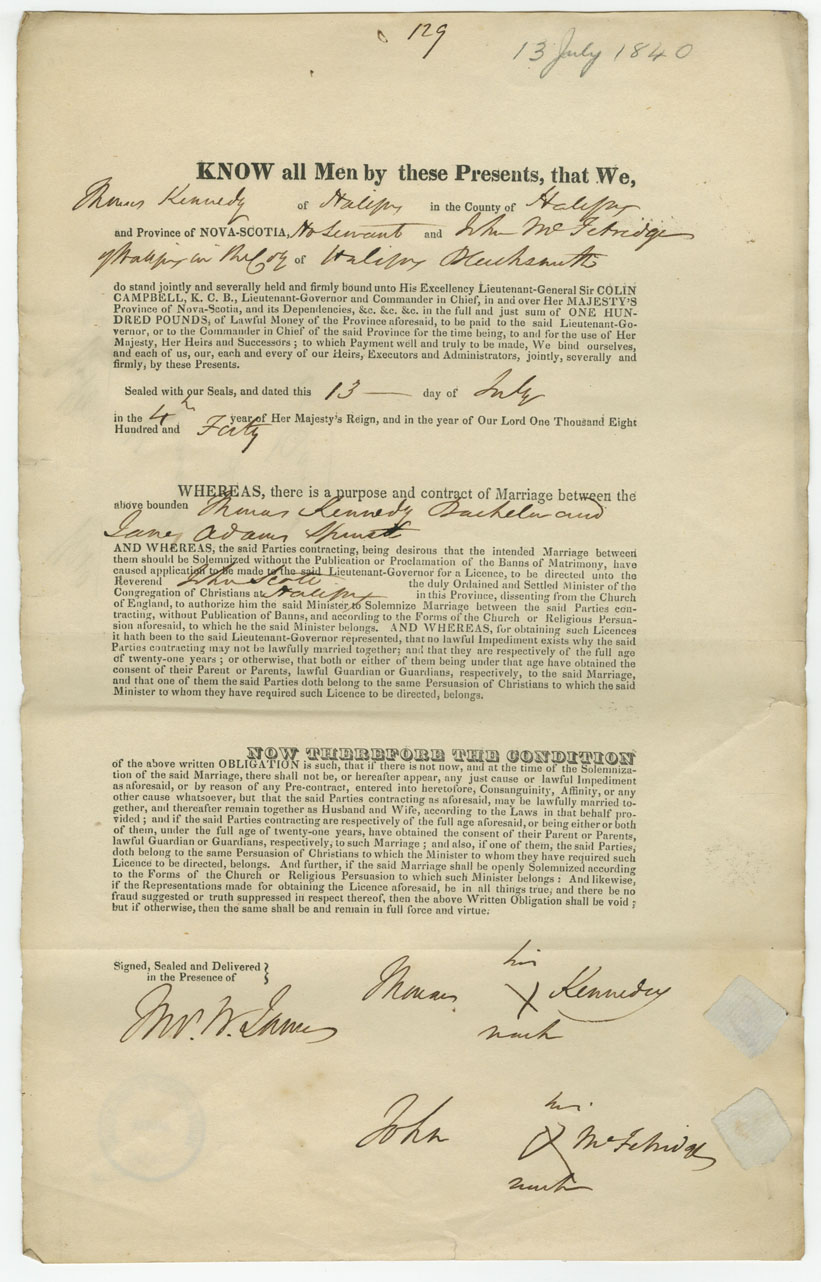 129
13 July 1840
KNOW all Men by these Presents, that We,
Thomas Kennedy of Halifax in the County of Halifax
and Province of NOVA-SCOTIA, and John McFetridge
of Halifax in the of Halifax
do stand jointly and severally held and firmly bound unto His Excellency Lieutenant-General Sir COLIN
CAMPBELL, K. C. B., Lieutenant-Governor and Commander in Chief, in and over Her MAJESTY'S
Province of Nova-Scotia, and its Dependencies, &c. &c. &c. in the full and just sum of ONE HUN-
DRED POUNDS, of Lawful Money of the Province aforesaid, to be paid to the said Lieutenant-Go-
vernor, or to the Commander in Chief of the said Province for the time being, to and for the use of Her
Majesty, Her Heirs and Successors; to which Payment well and truly to be made, We bind ourselves,
and each of us, our, each and every of our Heirs, Executors and Administrators, jointly, severally and
firmly, by these Presents.
Sealed with our Seals, and dated this 13 — day of July
in the 4th year of Her Majesty's Reign, and in the year of Our Lord One Thousand Eight
Hundred and Forty
WHEREAS, there is a purpose and contract of Marriage between the
above bounden Thomas Kennedy Bachelor and
Jane Adams Spinster
AND WHEREAS, the said Parties contracting, being desirous that the intended Marriage between
them should be Solemnized without the Publication or Proclamation of the Banns of Matrimony, have
caused application to be made to the said Lieutenant-Governor for a Licence, to be directed unto the
Reverend John Scott the duly Ordained and Settled Minister of the
Congregation of Christians at Halifax in this Province, dissenting from the Church
of England, to authorize him the said Minister to Solemnize Marriage between the said Parties con-
tracting, without Publication of Banns, and according to the Forms of the Church or Religious Persua-
sion aforesaid, to which he the said Minister belongs. AND WHEREAS, for obtaining such Licences
it hath been to the said Lieutenant-Governor represented, that no lawful Impediment exists why the said
Parties contracting may not be lawfully married together; and that they are respectively of the full age
of twenty-one years; or otherwise, that both or either of them being under that age have obtained the
consent of their Parent or Parents, lawful Guardian or Guardians, respectively, to the said Marriage,
and that one of them the said Parties doth belong to the same Persuasion of Christians to which the said
Minister to whom they have required such Licence to be directed, belongs.
NOW THEREFORE THE CONDITION
of the above written OBLIGATION is such, that if there is not now, and at the time of the Solemniza-
tion of the said Marriage, there shall not be, or hereafter appear, any just cause or lawful Impediment
as aforesaid, or by reason of any Pre-contract, entered into heretofore, Consanguinity, Affinity, or any
other cause whatsoever, but that the said Parties contracting as aforesaid, may be lawfully married to-
gether, and thereafter remain together as Husband and Wife, according to the Laws in that behalf pro-
vided; and if the said Parties contracting are respectively of the full age aforesaid, or being either or both
of them, under the full age of twenty-one years, have obtained the consent of their Parent or Parents,
lawful Guardian or Guardians, respectively, to such Marriage; and also, if one of them, the said Parties,
doth belong to the same Persuasion of Christians to which the Minister to whom they have required such
Licence to be directed, belongs. And further, if the said Marriage shall be openly Solemnized according
to the Forms of the Church or Religious Persuasion to which such Minister belongs: And likewise,
if the Representations made for obtaining the Licence aforesaid, be in all things true, and there be no
fraud suggested or truth suppressed in respect thereof, then the above Written Obligation shall be void;
but if otherwise, then the same shall be and remain in full force and virtue.
Signed, Sealed and Delivered }
in the Presence of
his
Thomas X Kennedy
mark
W. James
his
John X McFetridge
mark